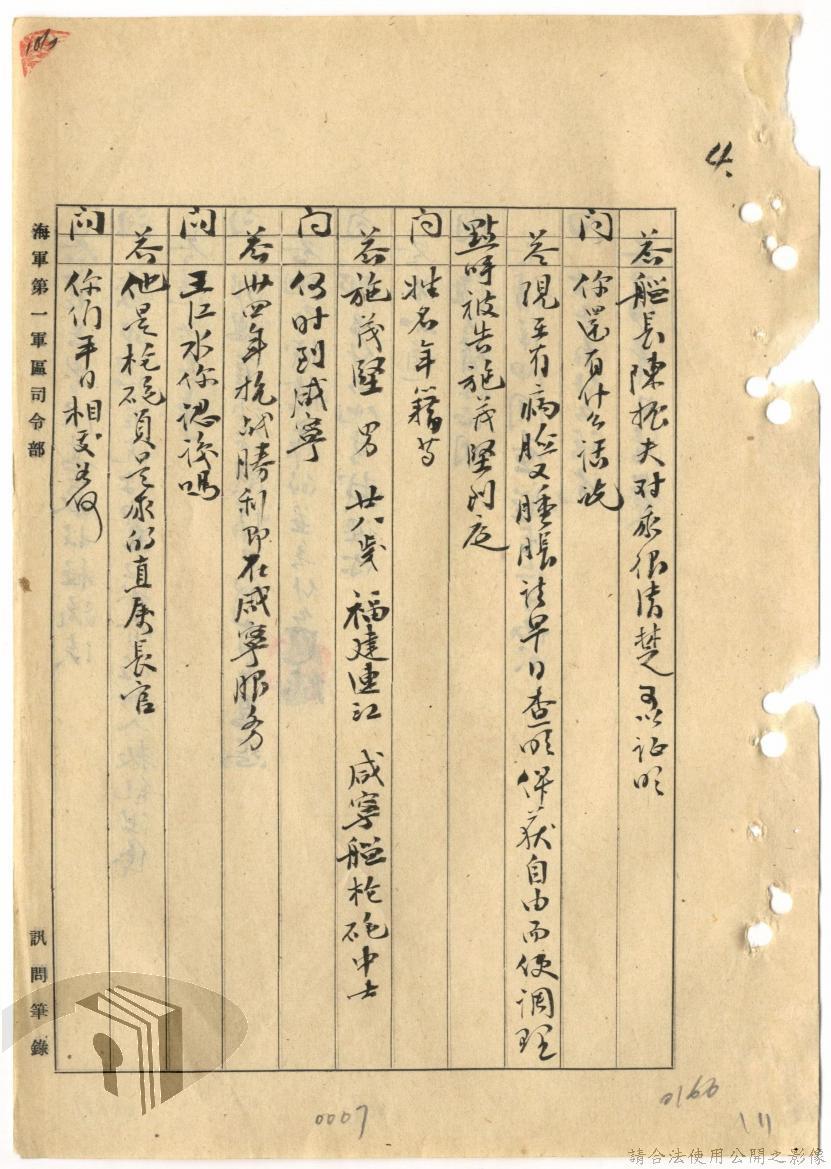 4.
答 艦長陳振夫对我很清楚 可以证明
问 你還有什么话说
答 現在有病脸又腫脹请早日查明俾获自由而便調理
點呼被告施茂堅到庭
问 姓名年籍等
答 施茂堅 男 廿八歲 福建連江 咸寧艦枪砲中士
问 何时到咸寧
答 卅四年抗战勝利即在咸寧服务
问 王仁水你認識嗎
答 他是枪砲員是我的直属長官
问 你们平日相交如何
海軍第一軍區司令部
訊問筆錄
0007
0166
111
請合法使用公開之影像